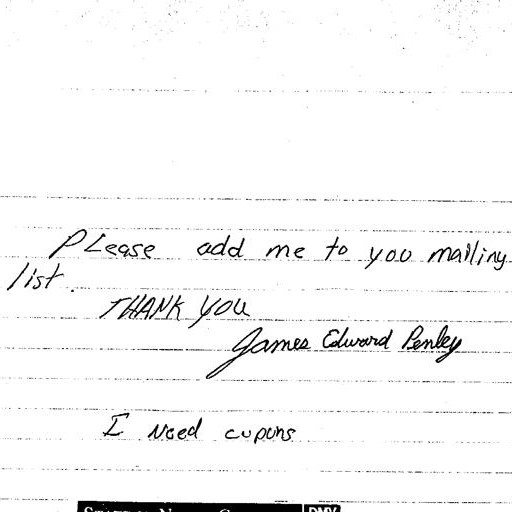 PLease add me to you mailing
list.
THANK YOU
James Edward Penley
I Need cupons
DMV